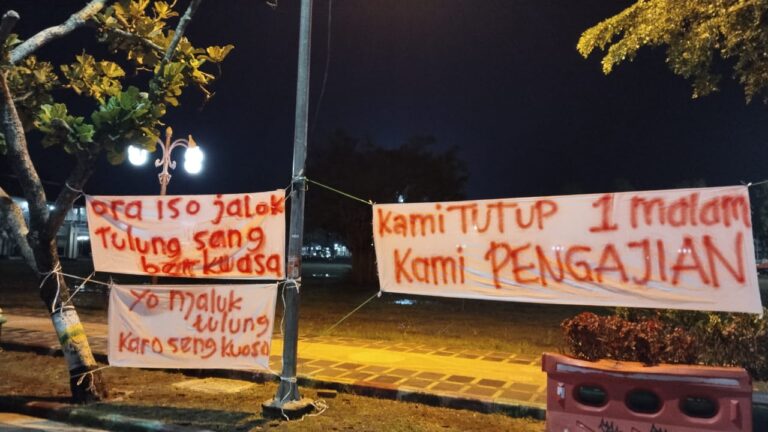 ora iso jalok
Tulung sang
berkuasa
Yo maluk
tulung
Karo seng kuoso
Kami TUTUP 1 malam
Kami PENGAJIAN